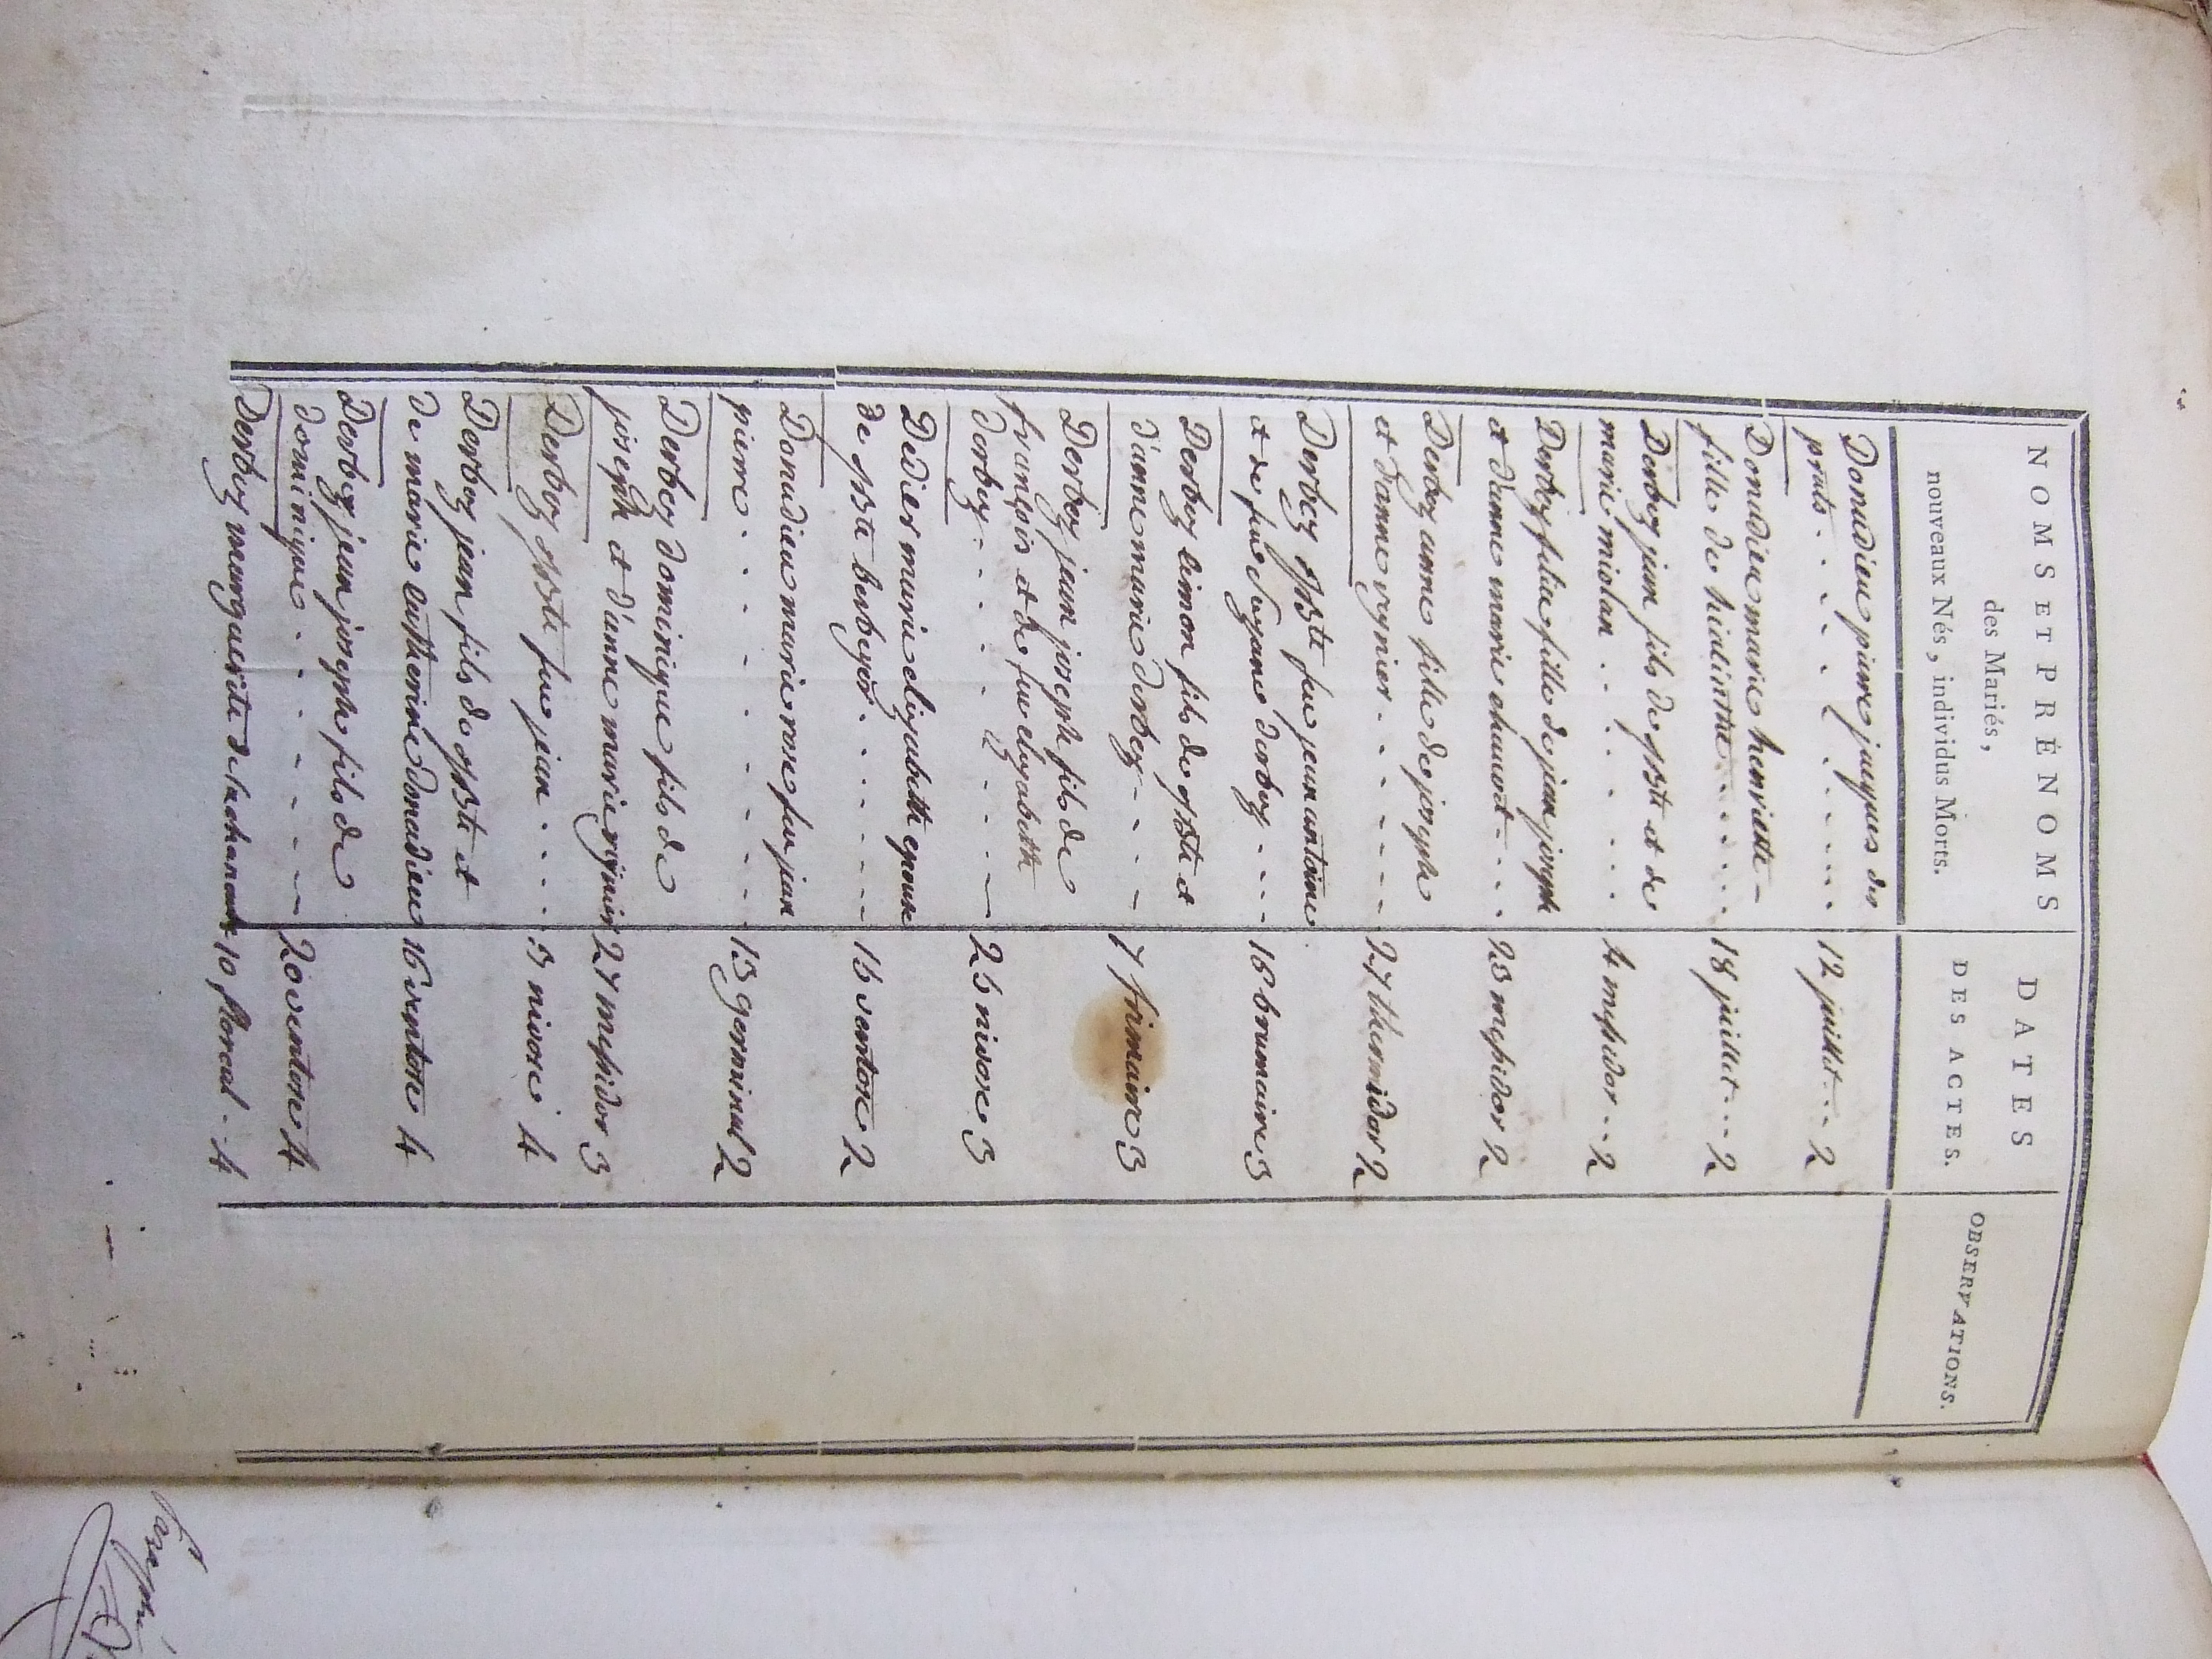 NOMS ET PRÉNOMS
des Mariés,
nouveaux Nés, individus Morts.
DATES
DES ACTES.
OBSERVATIONS.
Donadieu pierre jacques des
prats . . . . . . . . 12 juillet . . . 2
Donadieu marie henriette –
fille de hiacinthe . . . . . . 18 juillet . . . 2
Derbez jean fils de jbte et de
marie miolan . . . . . . 4 messidor . . 2
Derbez felicie fille de jean joseph
et d'anne marie chauvet . . . 23 messidor 2
Derbez anne fille de joseph
et d'anne reynier . - - - - 27 thermidor 2
Derbez jbte feu jean antoine
et de feu Suzanne derbez . - - - 16 brumaire 3
Derbez simon fils de jbte et
d'anne marie derbez - - - - 7 frimaire 3
Derbez jean joseph fils de
francois et de feu elizabeth
derbez - - - - - - - 26 nivose 3
Dedier marie elizabeth epouse
de jbte berbeyer . . - - - - 16 ventose 2
Donadieu marie rose feu jean
pierre . - - - - - - - 13 germinal 2
Derbez dominique fils de
joseph et d'anne marie reynier 27 messidor 3
Derbez jbte feu jean . . . . 3 nivose 4
Derbez jean fils de jbte et
de marie catherine donadieu 16 ventose 4
Derbez jean joseph fils de
dominique . - - - - - - 20 ventose 4
Derbez marguerite de lachanau 10 floreal . . 4